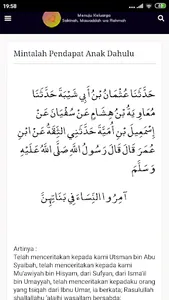 19:58
Menuju Keluarga
Sakinah, Mawaddah wa Rahmah
Mintalah Pendapat Anak Dahulu
حَدَّثَنَا عُثْمَانُ بْنُ أَبِي شَيْبَةَ حَدَّثَنَا
مُعَاوِيَةُ بْنُ هِشَامٍ عَنْ سُفْيَانَ عَنْ
إِسْمَعِيلَ بْنِ أُمَيَّةَ حَدَّثَنِي الثِّقَةُ عَنْ ابْنِ
عُمَرَ قَالَ قَالَ رَسُولُ اللَّهِ صَلَّى اللَّهُ عَلَيْهِ
وَسَلَّمَ
آمِرُوا النِّسَاءَ فِي بَنَاتِهِنَّ
Artinya :
Telah menceritakan kepada kami Utsman bin Abu
Syaibah, telah menceritakan kepada kami
Mu'awiyah bin Hisyam, dari Sufyan, dari Isma'il
bin Umayyah, telah menceritakan kepadaku orang
yang tsiqah dari Ibnu Umar, ia berkata; Rasulullah
shallallahu 'alaihi wasallam bersabda: